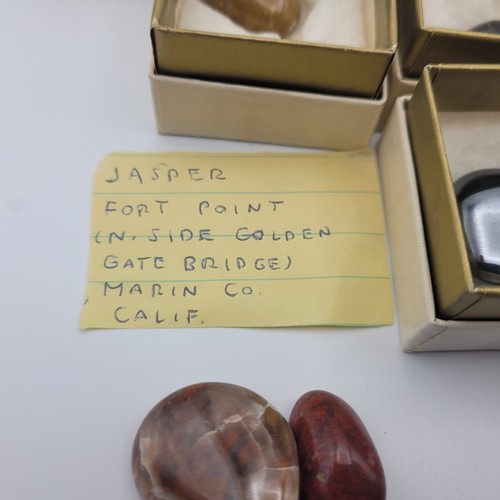 JASPER
FORT POINT
(N. SIDE GOLDEN
GATE BRIDGE)
MARIN CO.
CALIF.